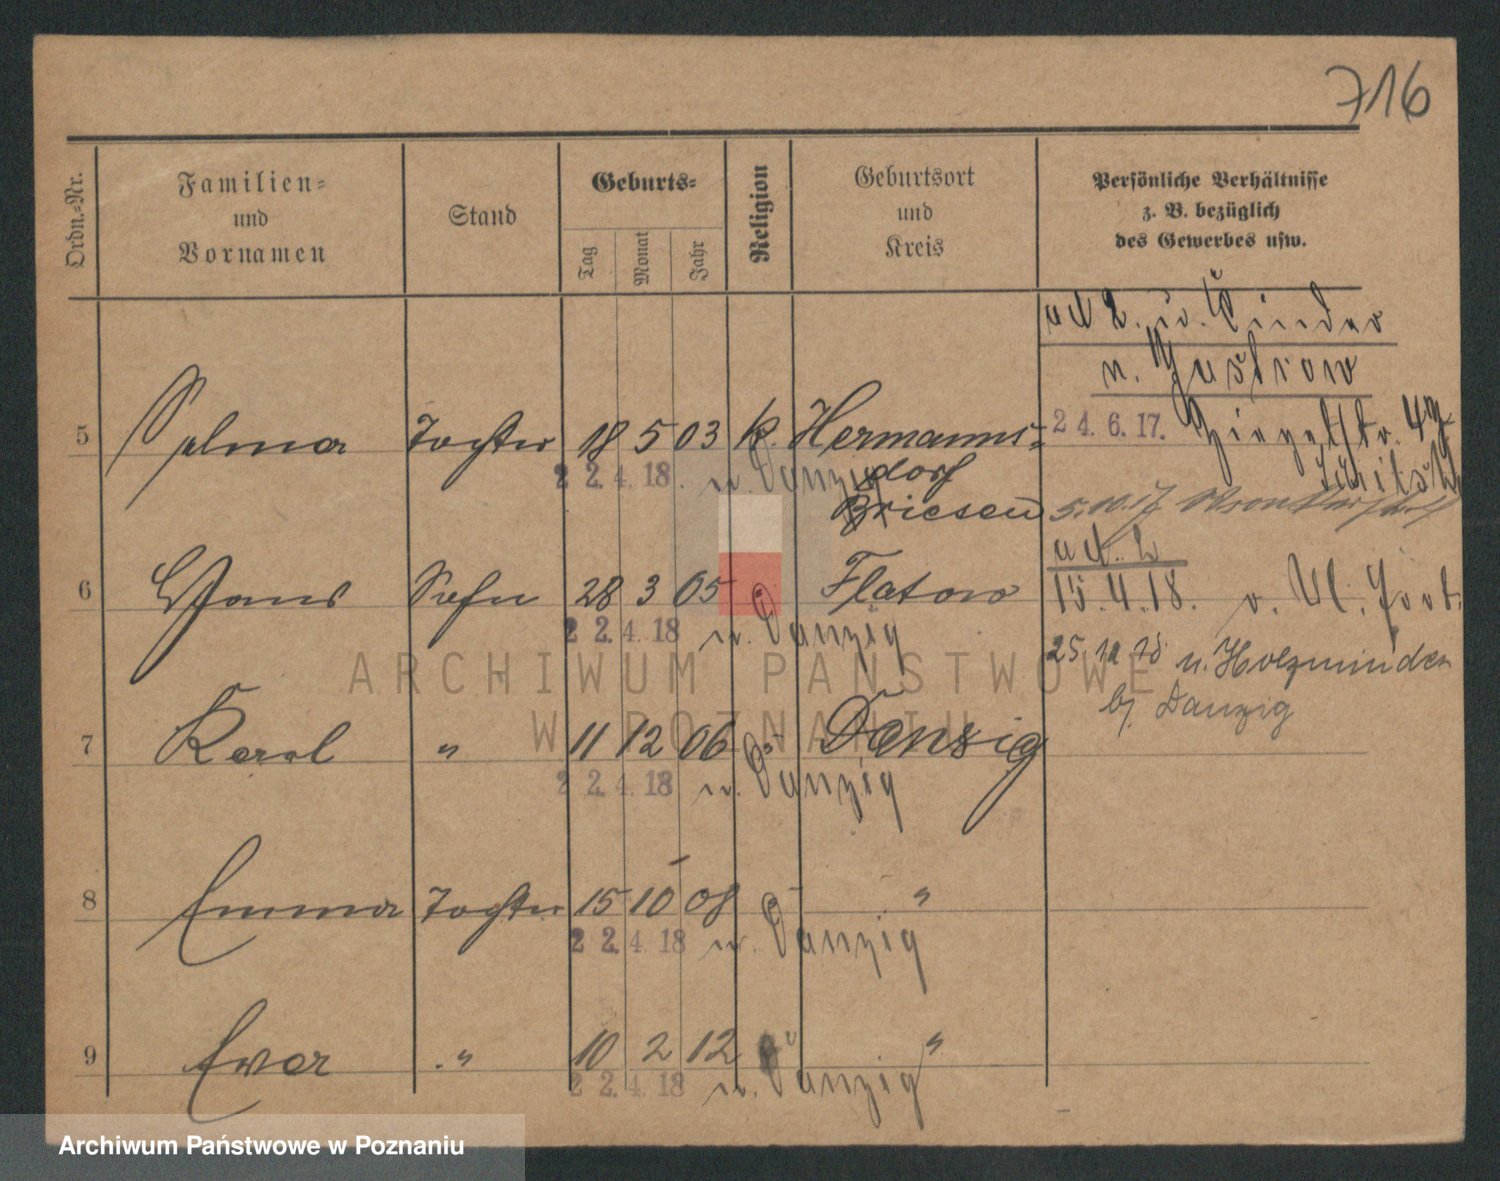 716
Ordn.-Nr.
Familien-
und
Vornamen
Stand
Geburts-
Tag
Monat
Jahr
Religion
Geburtsort
und
Kreis
Persönliche Verhältnisse
z. B. bezüglich
des Gewerbes usw.
ad 2. u. Kinder
n. Jastrow
5 Selma Tochter 18 5 03 k. Hermanns-
dorf
Briesen
24.6.17.
2 2.4.18. n. Danzig
5.10.17
ad. 2
6 Hans Sohn 28 3 05 Flatow
15.4.18. v.
2 2.4.18 n. Danzig
25.10.18 n. Holzminden
b/ Danzig
7 Karl " 11 12 06 Danzig
2 2.4.18 n. Danzig
8 Emma Tochter 15 10 08 "
2 2.4.18 n. Danzig
9 Eva " 10 2 12 "
2 2.4.18 n. Danzig
ARCHIWUM PAŃSTWOWE
W POZNANIU
Archiwum Państwowe w Poznaniu